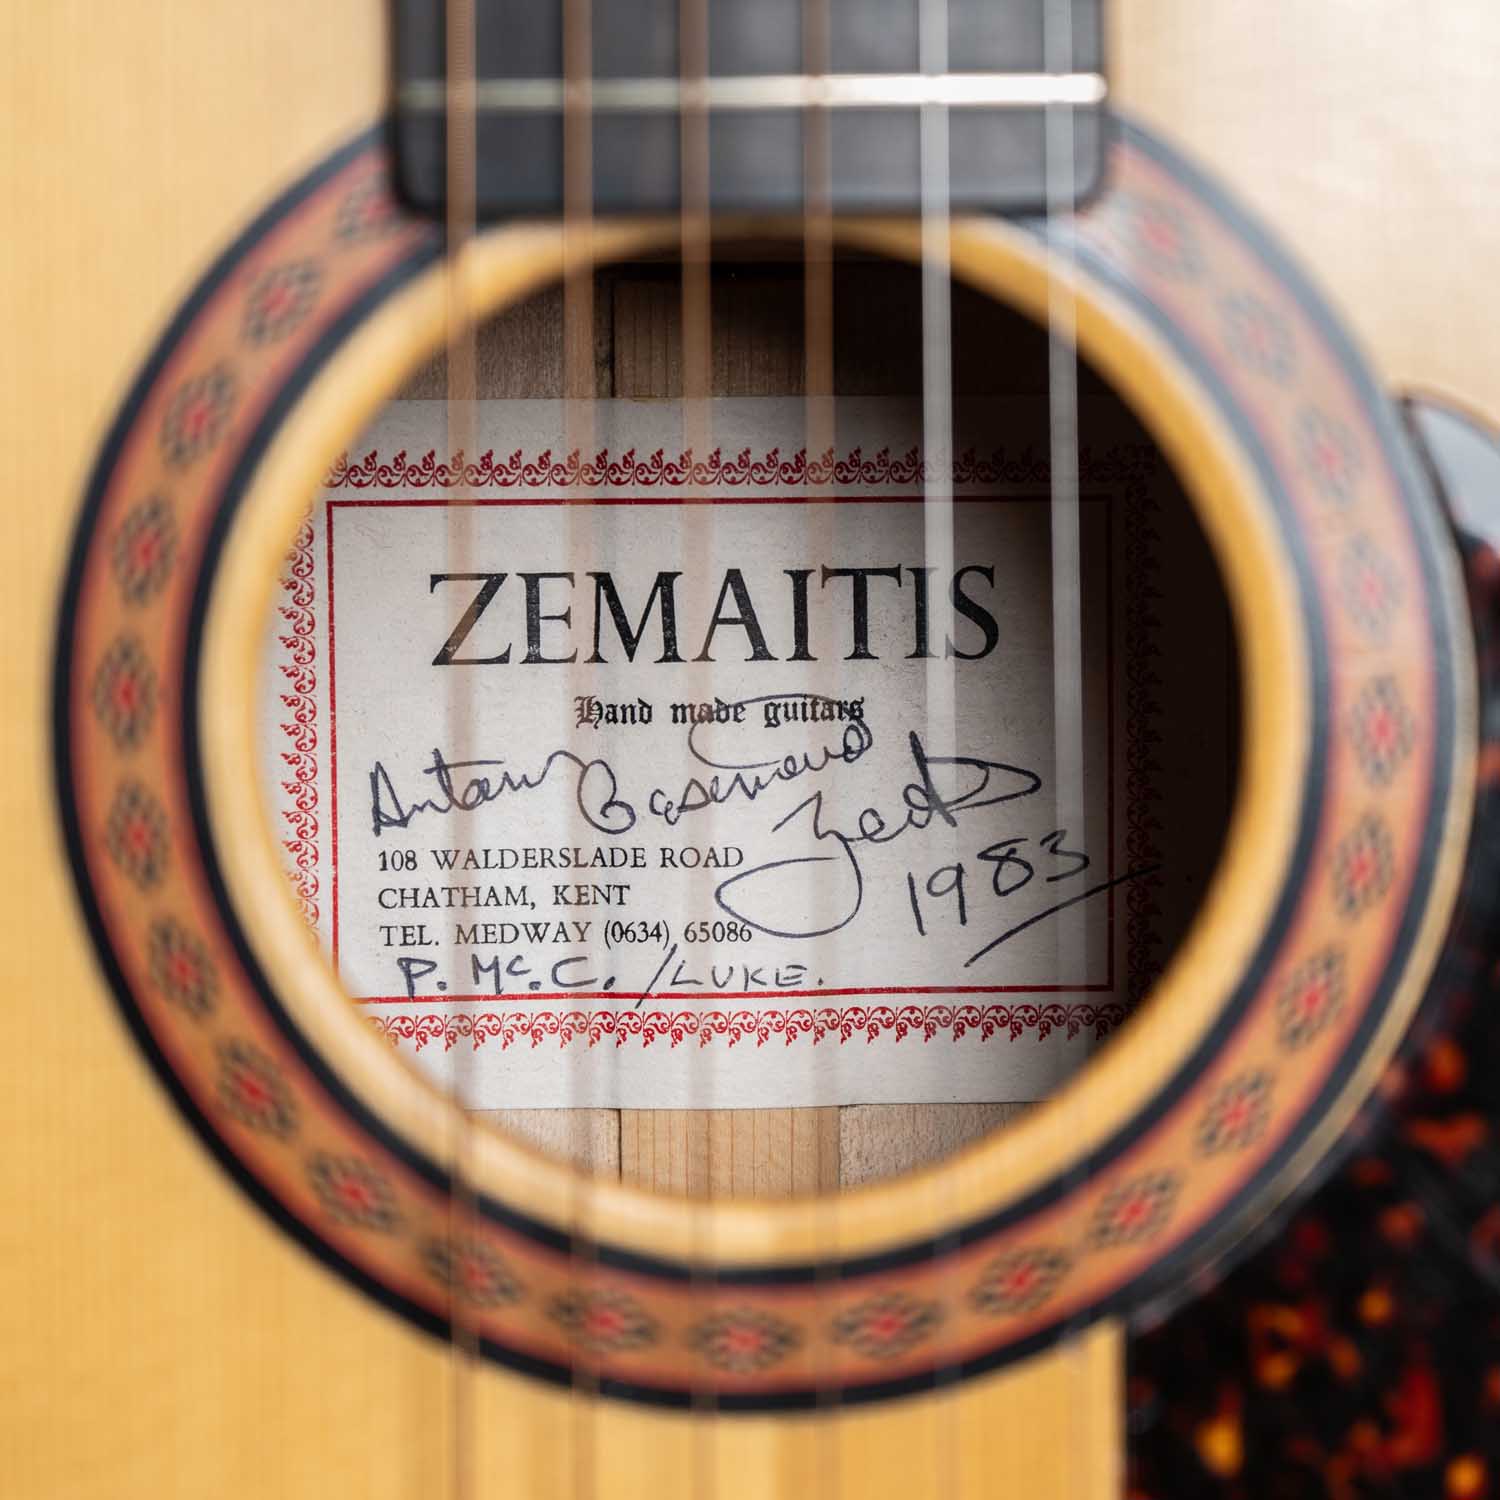 ZEMAITIS
Hand made guitars
Antanus Casimere Zemaitis
1983
108 WALDERSLADE ROAD
CHATHAM, KENT
TEL. MEDWAY (0634) 65086
P. McC. /LUKE.